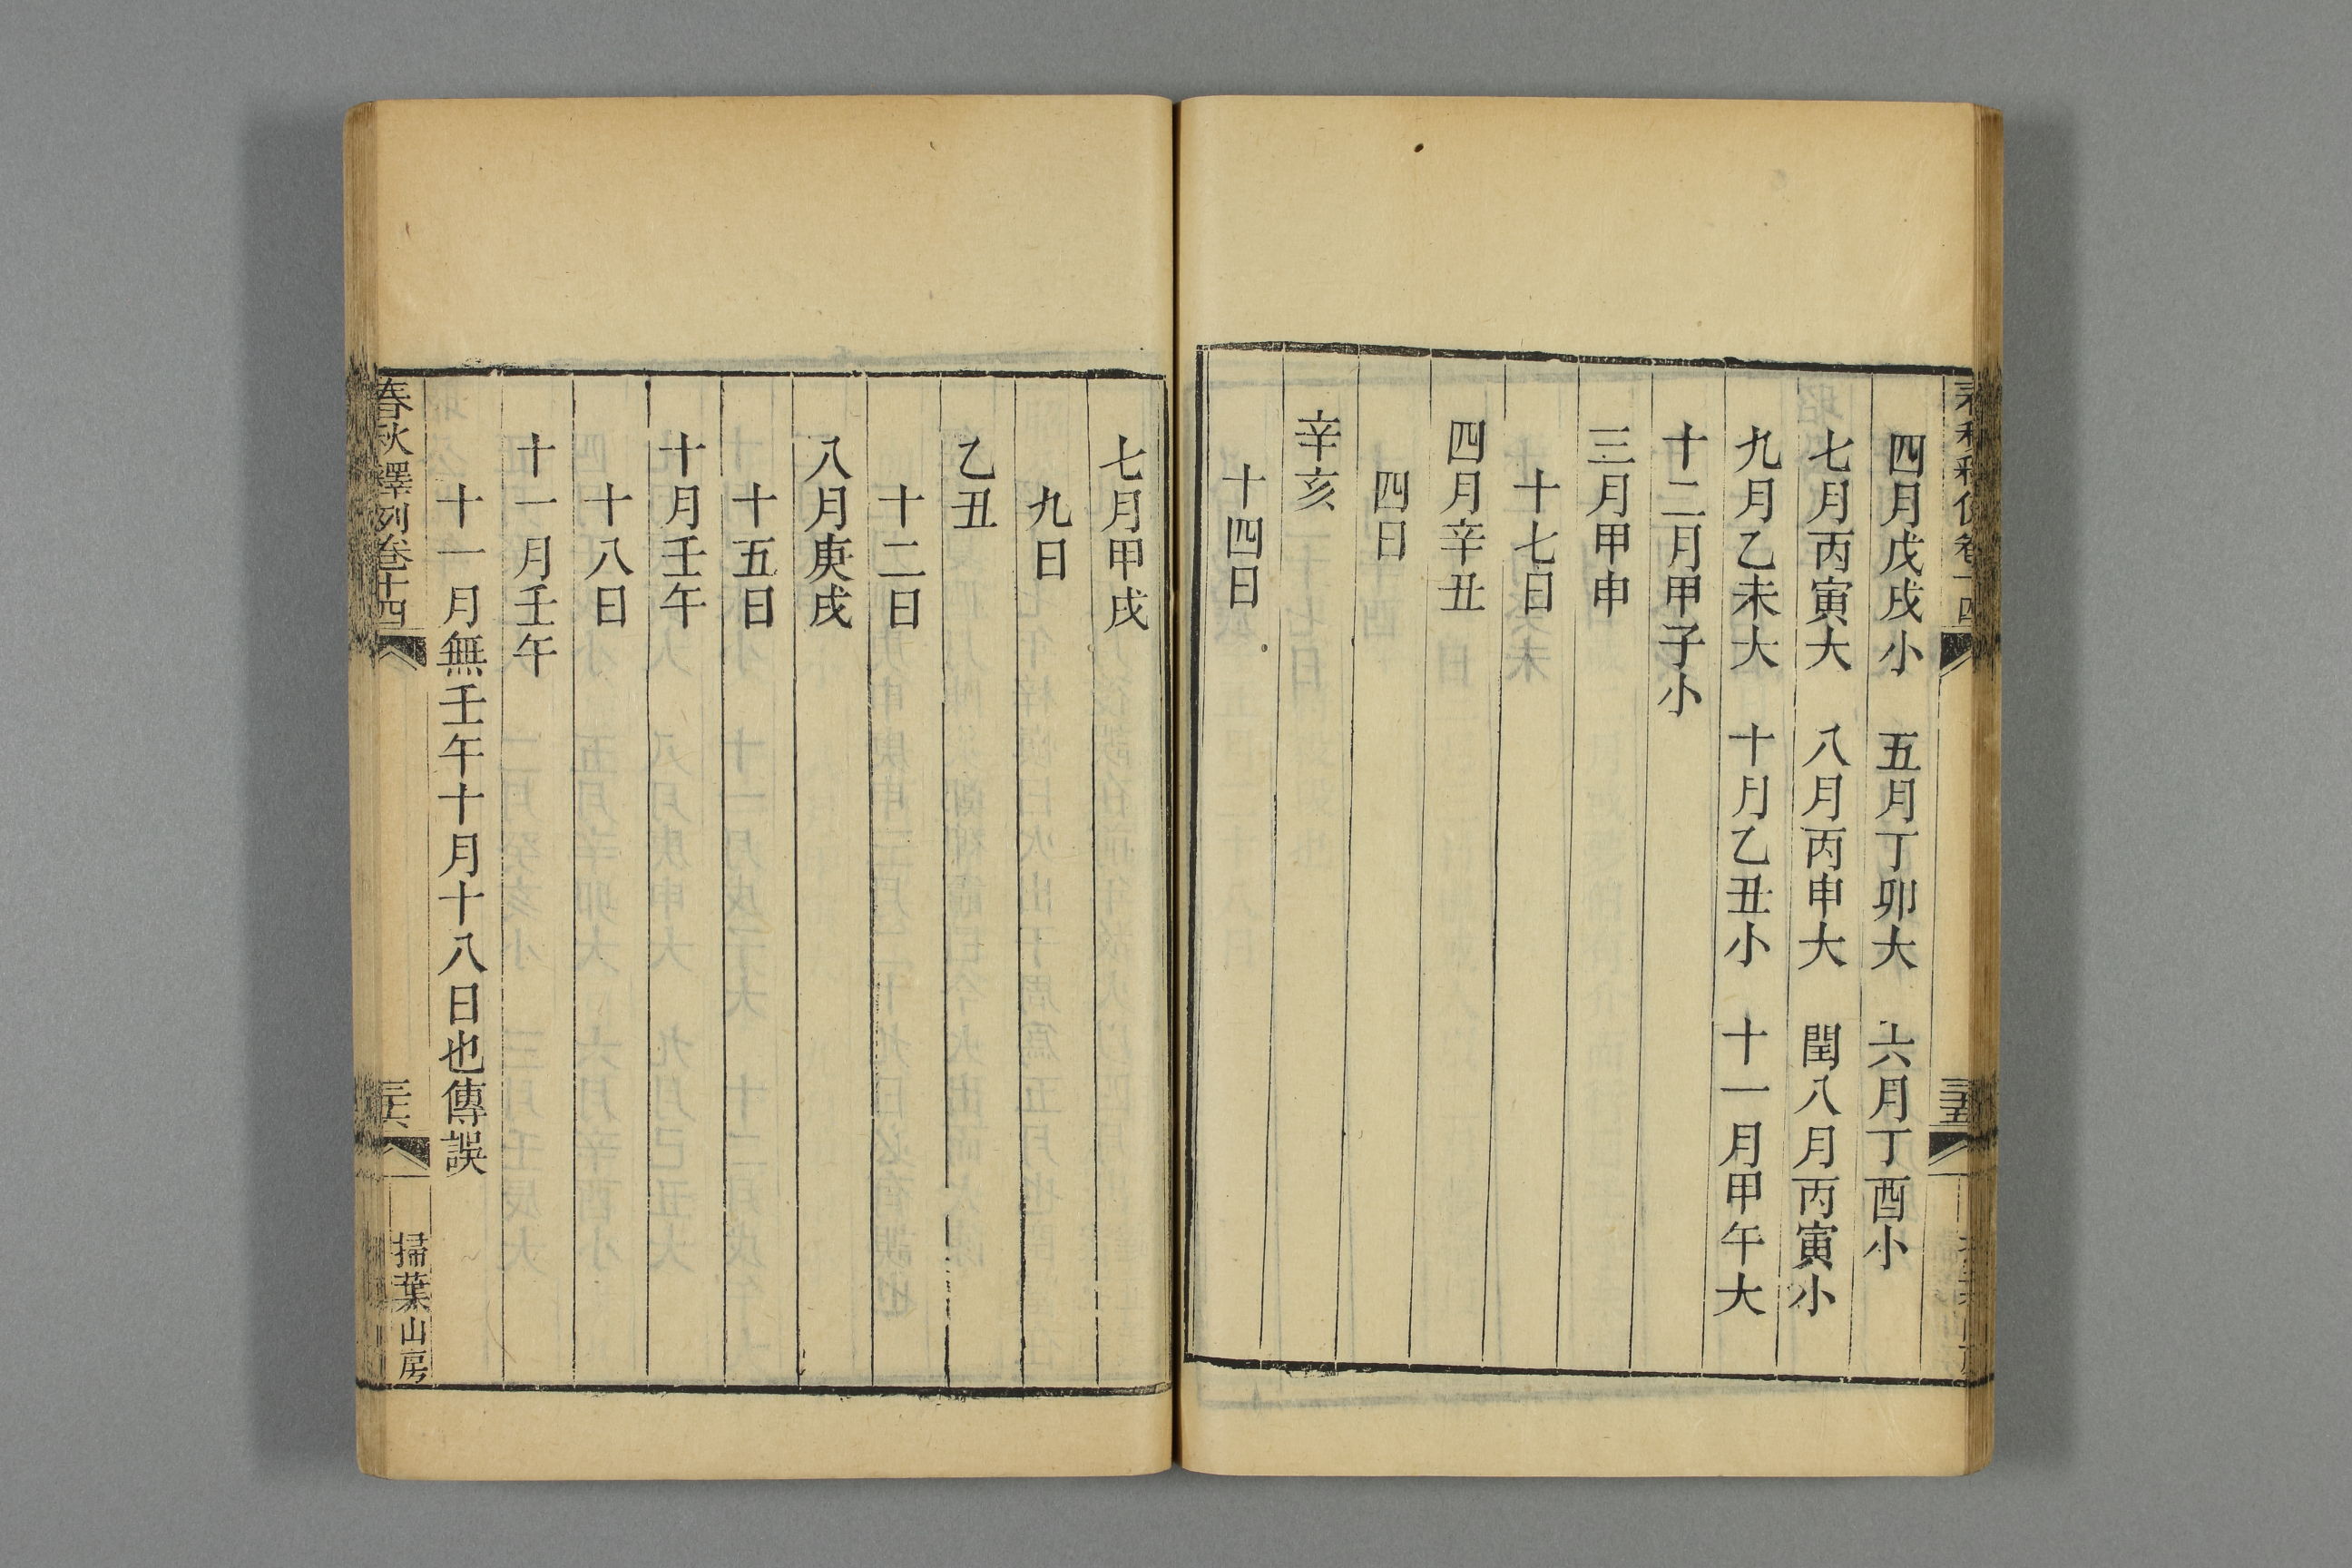 四月戊戌小　五月丁卯大　六月丁酉小
七月丙寅大　八月丙申大　閏八月丙寅小
九月乙未大　十月乙丑小　十一月甲午大
十二月甲子小
三月甲申
十七日
四月辛丑
四日
辛亥
十四日
七月甲戌
九日
乙丑
十二日
八月庚戌
十五日
十月壬午
十八日
十一月壬午
十一月無壬午十月十八日也傳誤
春秋釋列卷十四
三六
掃葉山房